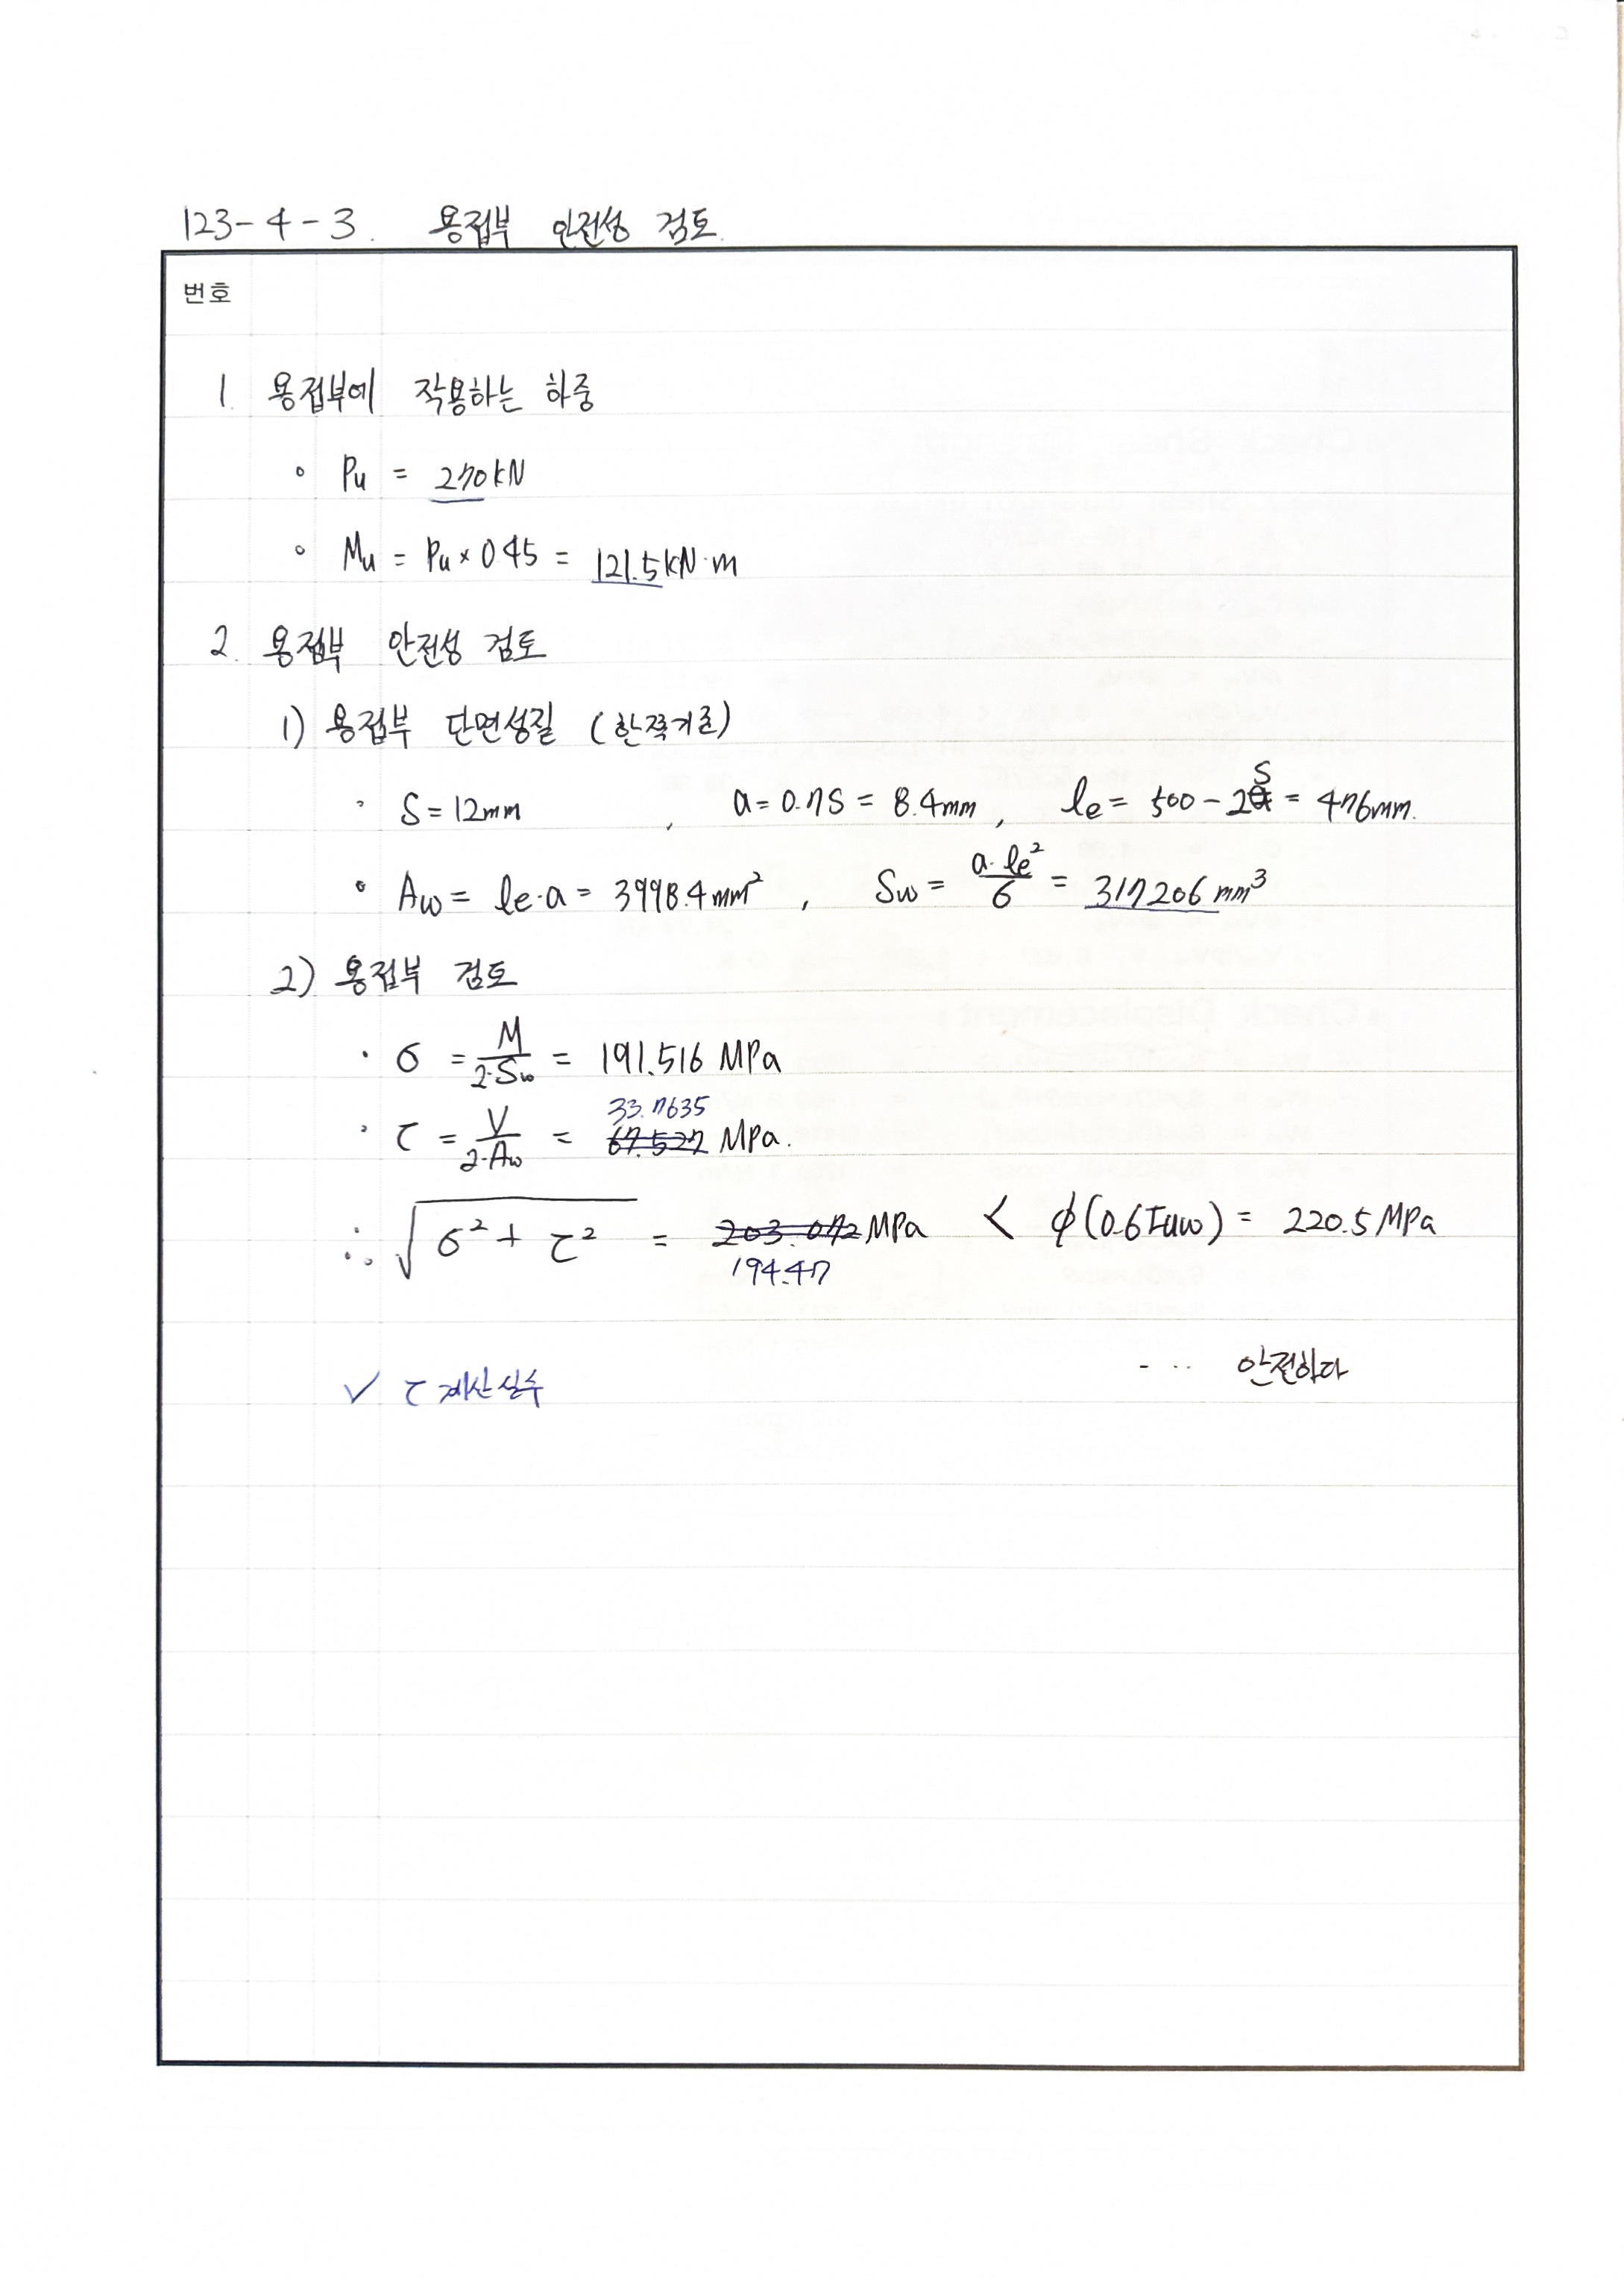 123-4-3. 용접부 안전성 검토.
번호
1. 용접부에 작용하는 하중
∘ Pu = 270kN
∘ Mu = Pu × 0.45 = 121.5kN·m
2. 용접부 안전성 검토
1) 용접부 단면성질 (한쪽기준)
· S = 12mm , a = 0.7S = 8.4mm , le = 500 - 2S = 476mm.
∘ Aw = le·a = 3998.4mm² , Sw = a·le²/6 = 317206 mm³
2) 용접부 검토
· σ = M/2·Sw = 191.516 MPa
33.7635
· τ = V/2·Aw = 67.527 MPa.
∴ √σ² + τ² = 203.072 MPa < ϕ(0.6Fuw) = 220.5 MPa
194.47
--- 안전하다
✓ τ 계산실수